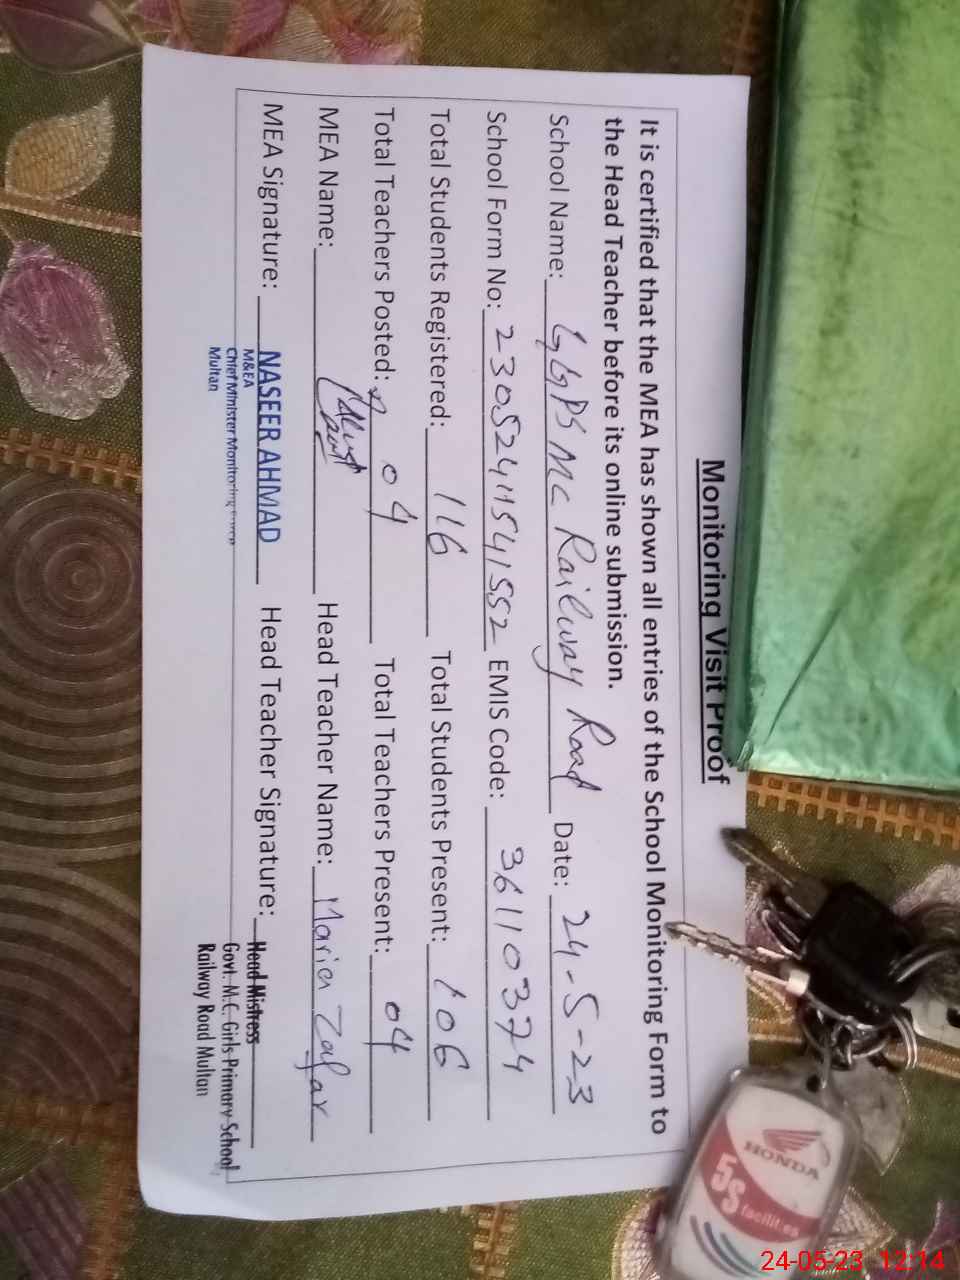 Monitoring Visit Proof
It is certified that the MEA has shown all entries of the School Monitoring Form to
the Head Teacher before its online submission.
School Name: GGPS MC Railway Road Date: 24-5-23
School Form No: 23052411541552 EMIS Code: 36110374
Total Students Registered: 116 Total Students Present: 106
Total Teachers Posted: 04 Total Teachers Present: 04
MEA Name: Head Teacher Name: Maria Zafar
MEA Signature: NASEER AHMAD Head Teacher Signature: Head Mistress
M&EA
Chief Minister Monitoring
Multan
Govt. M.C. Girls Primary School
Railway Road Multan
HONDA
5S
facilities
24-05-23 12:14